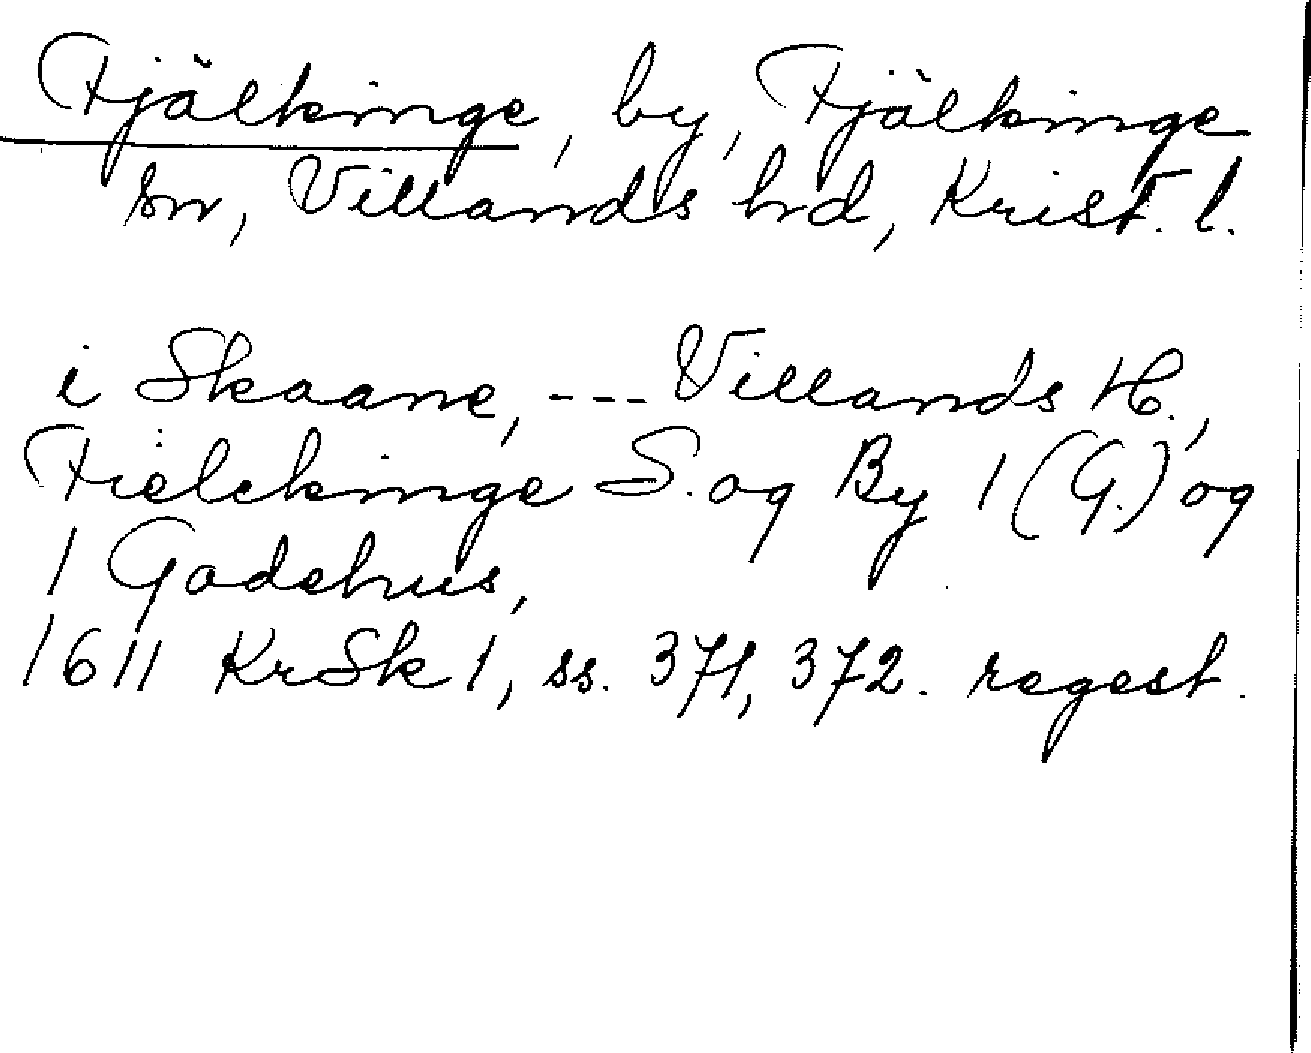 Fjälkinge, by, Fjälkinge
sn, Villands hd, Krist. l.
i Skaane, --- Villands H.,
Fielckinge S. og By 1 (G.) og
1 Gadehus,
1611 KrSk 1, ss. 371, 372. regest.